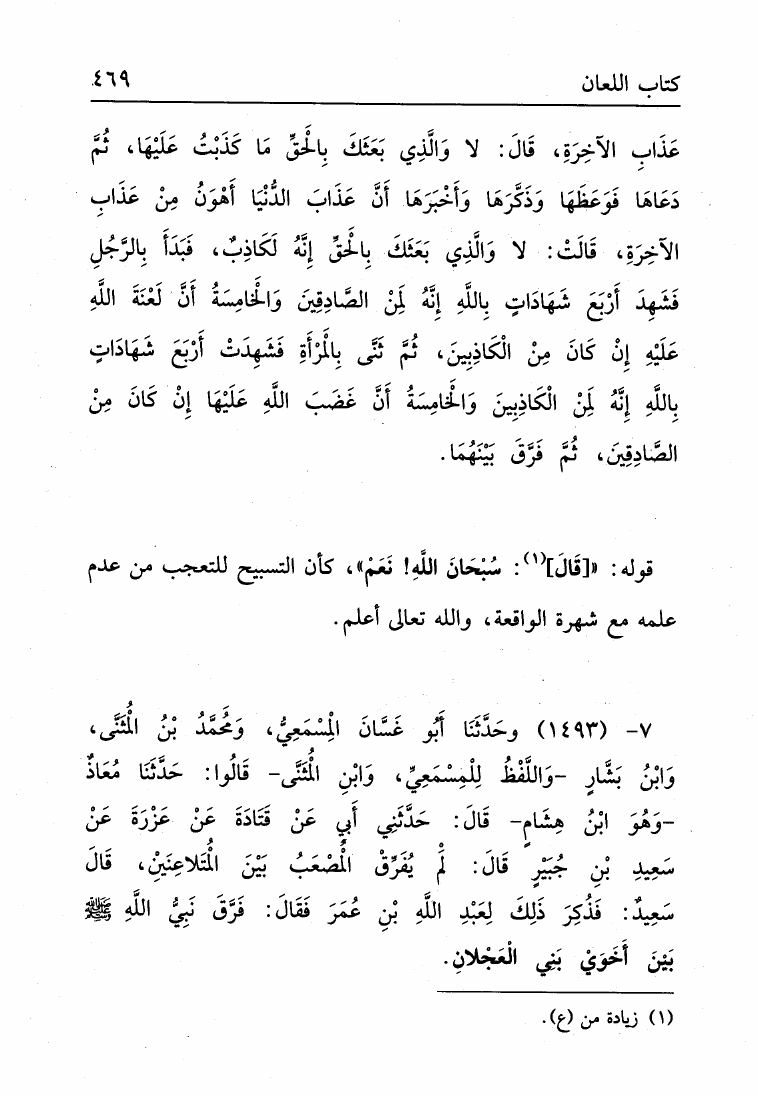 كتاب اللعان ٤٦٩
عَذَابِ الآخِرَةِ، قَالَ: لا وَالَّذِي بَعَثَكَ بِالْحَقِّ مَا كَذَبْتُ عَلَيْهَا، ثُمَّ
دَعَاهَا فَوَعَظَهَا وَذَكَّرَهَا وَأَخْبَرَهَا أَنَّ عَذَابَ الدُّنْيَا أَهْوَنُ مِنْ عَذَابِ
الآخِرَةِ، قَالَتْ: لا وَالَّذِي بَعَثَكَ بِالْحَقِّ إِنَّهُ لَكَاذِبٌ، فَبَدَأَ بِالرَّجُلِ
فَشَهِدَ أَرْبَعَ شَهَادَاتٍ بِاللَّهِ إِنَّهُ لَمِنْ الصَّادِقِينَ وَالْخَامِسَةُ أَنَّ لَعْنَةَ اللَّهِ
عَلَيْهِ إِنْ كَانَ مِنْ الْكَاذِبِينَ، ثُمَّ ثَنَّى بِالْمَرْأَةِ فَشَهِدَتْ أَرْبَعَ شَهَادَاتٍ
بِاللَّهِ إِنَّهُ لَمِنْ الْكَاذِبِينَ وَالْخَامِسَةُ أَنَّ غَضَبَ اللَّهِ عَلَيْهَا إِنْ كَانَ مِنْ
الصَّادِقِينَ، ثُمَّ فَرَّقَ بَيْنَهُمَا.
قوله: «[قَالَ](١): سُبْحَانَ اللَّهِ! نَعَمْ»، كأن التسبيح للتعجب من عدم
علمه مع شهرة الواقعة، والله تعالى أعلم.
٧- (١٤٩٣) وحَدَّثَنَا أَبُو غَسَّانَ الْمِسْمَعِيُّ، وَمُحَمَّدُ بْنُ الْمُثَنَّى،
وَابْنُ بَشَّارٍ -وَاللَّفْظُ لِلْمِسْمَعِيِّ، وَابْنِ الْمُثَنَّى- قَالُوا: حَدَّثَنَا مُعَاذٌ
-وَهُوَ ابْنُ هِشَامٍ- قَالَ: حَدَّثَنِي أَبِي عَنْ قَتَادَةَ عَنْ عَزْرَةَ عَنْ
سَعِيدِ بْنِ جُبَيْرٍ قَالَ: لَمْ يُفَرِّقْ الْمُصْعَبُ بَيْنَ الْمُتَلاعِنَيْنِ، قَالَ
سَعِيدٌ: فَذُكِرَ ذَلِكَ لِعَبْدِ اللَّهِ بْنِ عُمَرَ فَقَالَ: فَرَّقَ نَبِيُّ اللَّهِ ﷺ
بَيْنَ أَخَوَيْ بَنِي الْعَجْلانِ.
(١) زيادة من (ع).